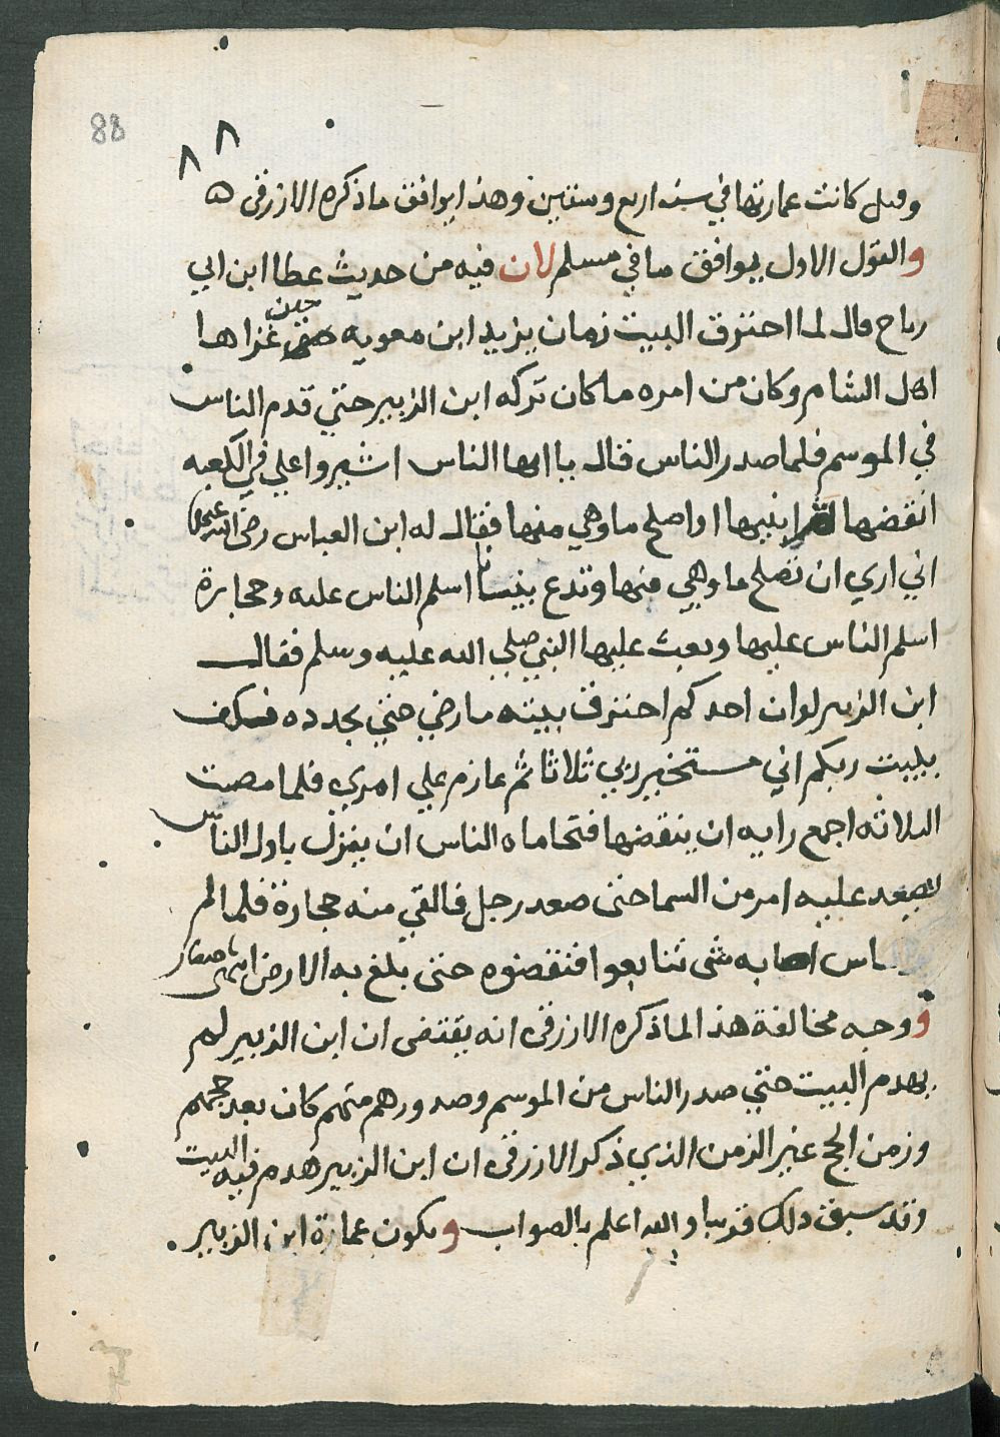 88
٨٨
وقيل كانت عمارتها في سنه اربع وستين وهذا يوافق ما ذكره الازرقى ه
والقول الاول يوافق ما في مسلم لان فيه من حديث عطا ابن ابي
رباح قال لما احترق البيت زمان يزيد ابن معويه حين غزاها
اهل الشام وكان من امره ما كان تركه ابن الزبير حتي قدم الناس
في الموسم فلما صدر الناس قال يا ايها الناس اشيروا علي في الكعبه
انقضها ثم ابنيها او اصلح ما وهي منها فقال له ابن العباس رضى الله عنهما
اني اري ان تصلح ما وهي منها وتدع بيتا اسلم الناس عليه وحجارة
اسلم الناس عليها وبعث عليها النبي صلي الله عليه وسلم فقال
ابن الزبير لوان احدكم احترق بيته ما رضي حتي يجدده فكيف
ببيت ربكم اني مستخير ربي ثلاثا ثم عازم علي امري فلما مضت
الثلاثه اجمع رايه ان ينقضها فتحاماه الناس ان ينزل باول الناس
يصعد عليه امر من السما حتى صعد رجل فالقي منه حجارة فلما لم
اصابه شى تتابعوا فنقضوه حتى بلغ به الارض انتهى
ووجه مخالفة هذا لما ذكره الازرقى انه يقتضى ان ابن الزبير لم
يهدم البيت حتي صدر الناس من الموسم وصدورهم منهم كان بعد حجهم
وزمن الحج غير الزمن الذي ذكر الازرقى ان ابن الزبير هدم فيه البيت
وقد سبق ذلك قريبا والله اعلم بالصواب ويكون عمارة ابن الزبير